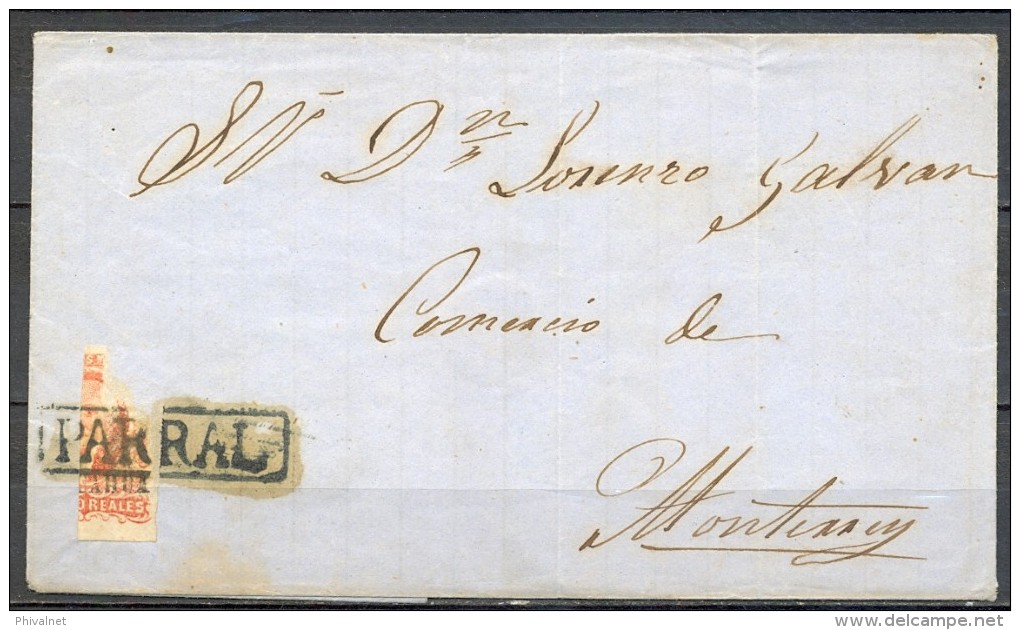 Sr Dn Lorenzo Galvan
Comercio de
Monterrey
PARRAL
AHUA
O REALES
Phivalnet
delcampe.net